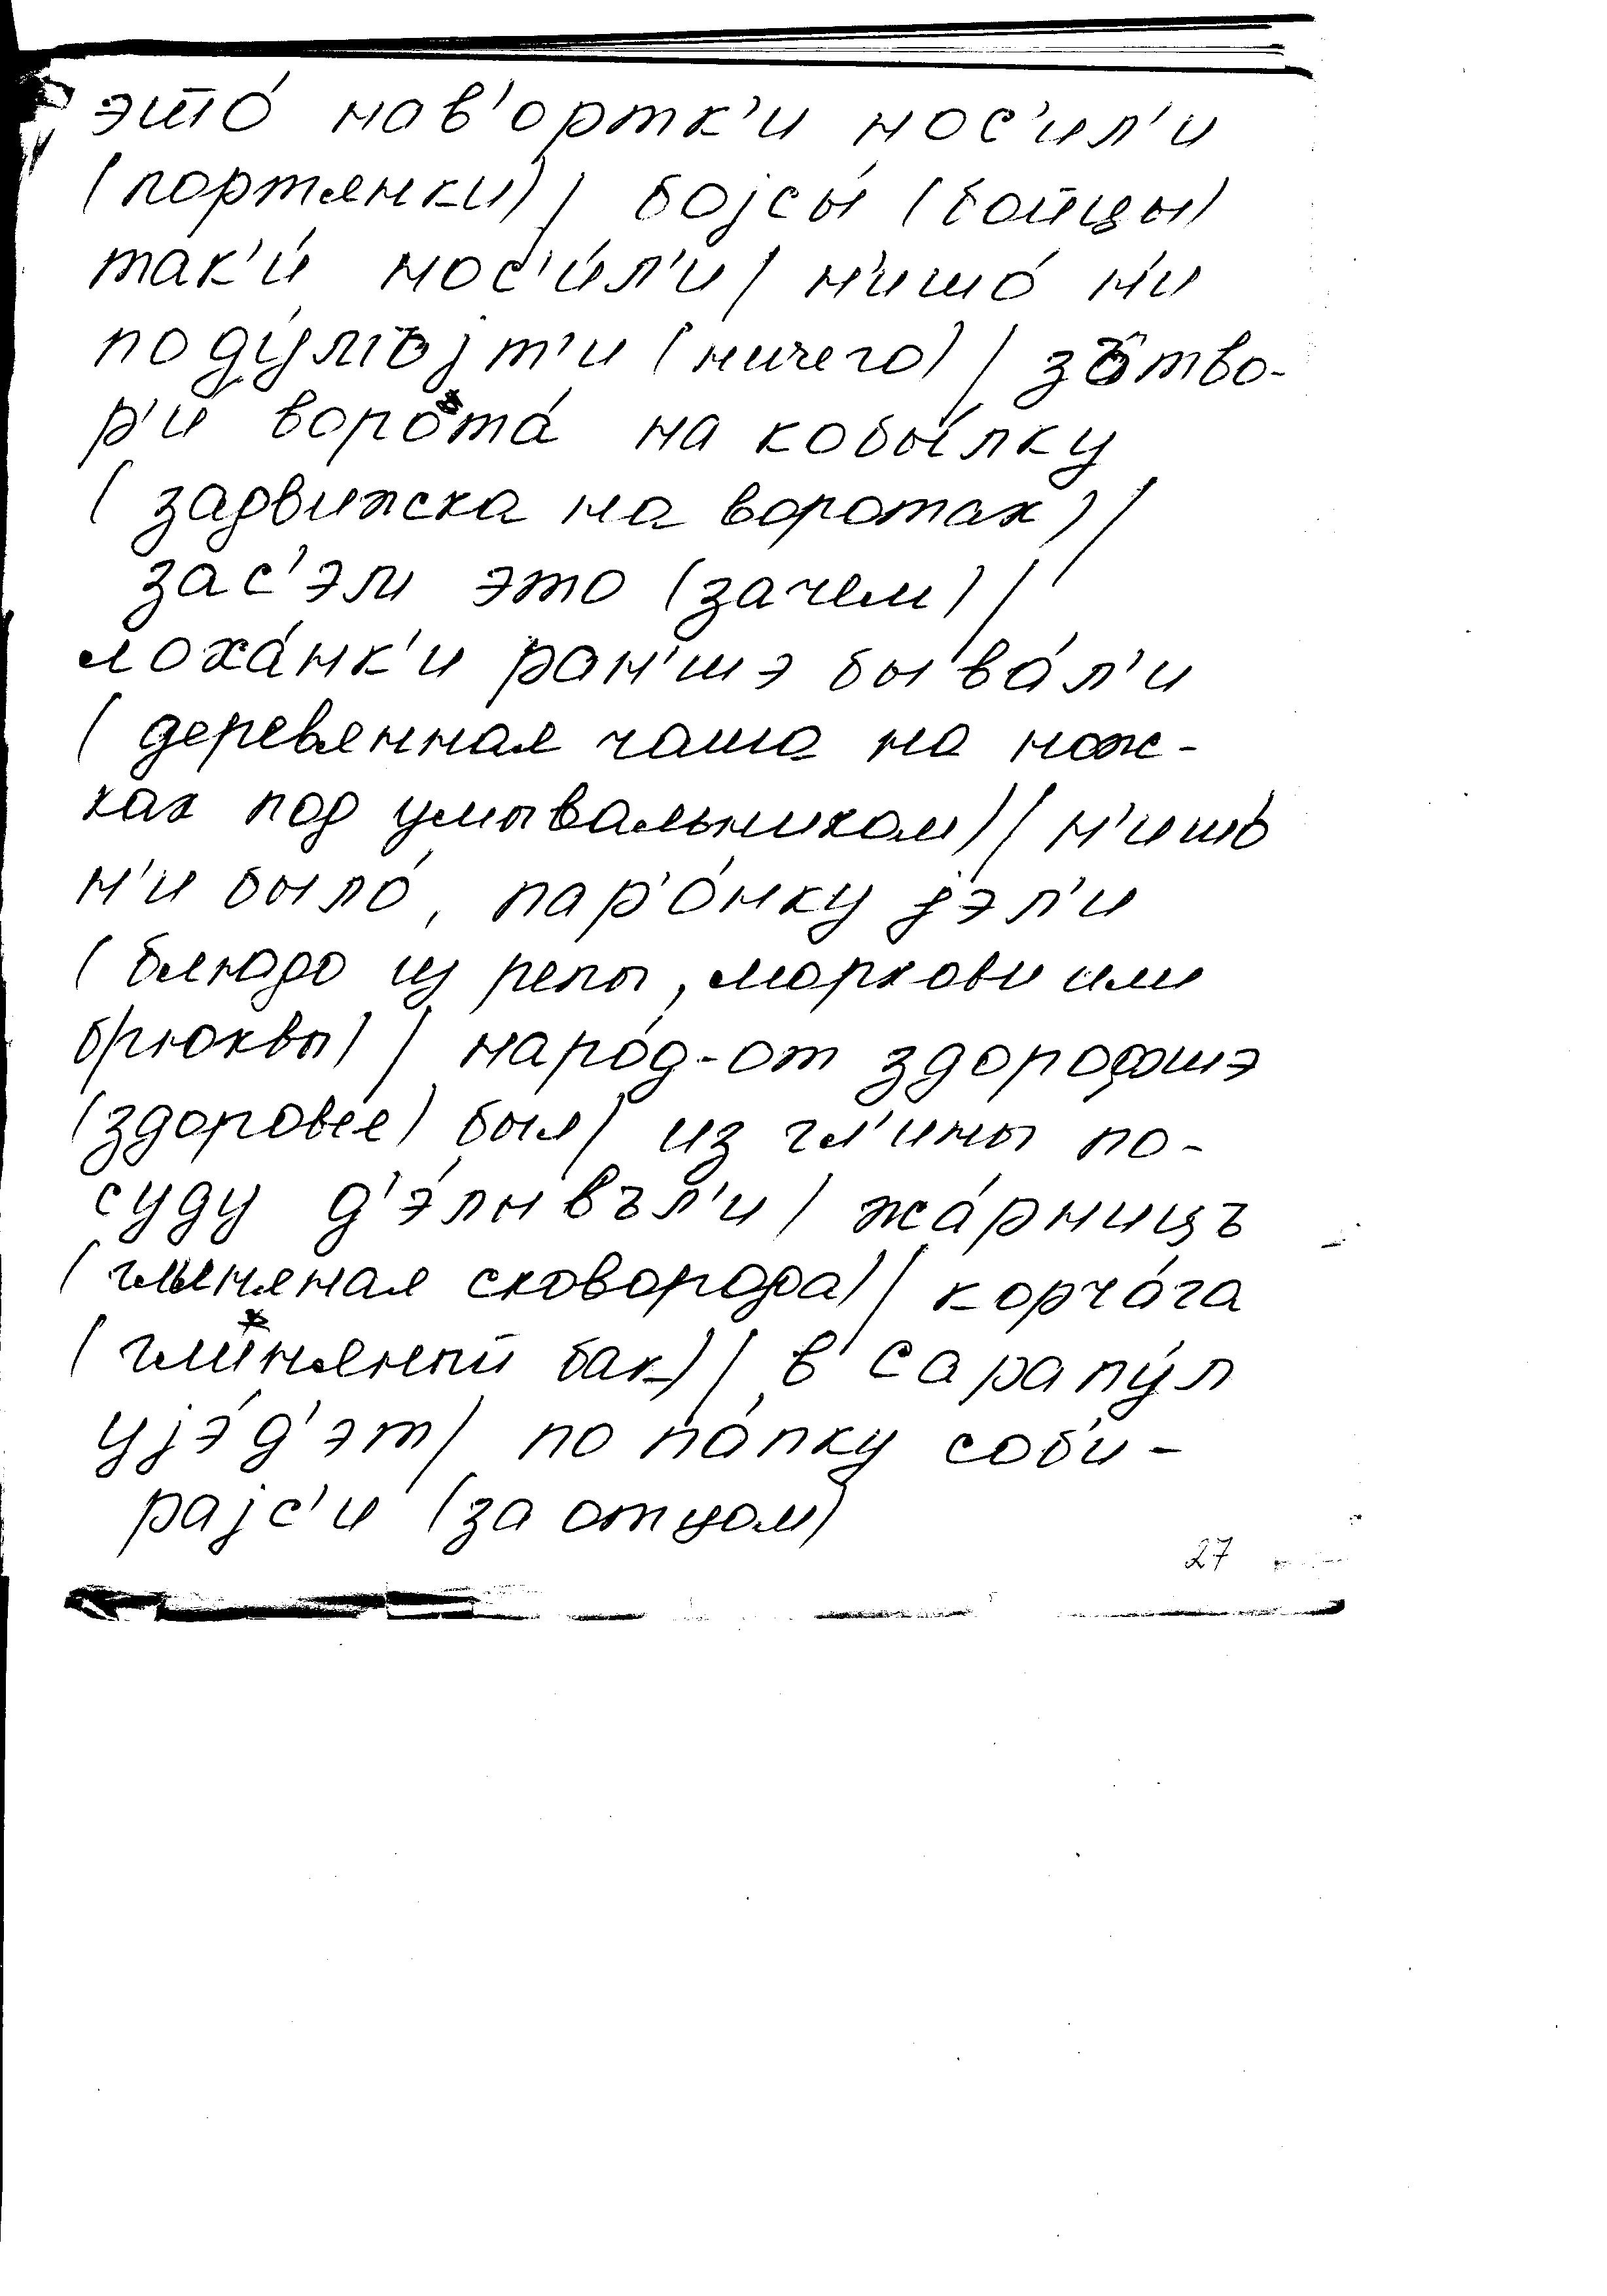 это́ нав'ортк'и нос'ил'и
(портянки) / бојсы́ (бойцы)
так'и́ нос'и́л'и / н'ишо́ н'и
поду́мъјт'и (ничего) / зътво-
р'и́ ворота́ на кобы́лку
(задвижка на воротах) /
зас'эм это (зачем) /
лоха́нк'и ран'шэ быва́л'и
(деревянная чаша на нож-
ках под умывальником) / н'ишо́
н'и было́, пар'о́нку јэл'и
(блюдо из репы, моркови или
брюквы) / наро́д-от здорофшэ
(здоровее) был / из гл'ины по-
суду д'э́лывъл'и / жа́рницъ
(глиняная сковорода) / корча́га
(глиняный бак) / в Сарапу́л
ујэ́д'эт / по па́пку соби-
рајс'и (за отцом)
27